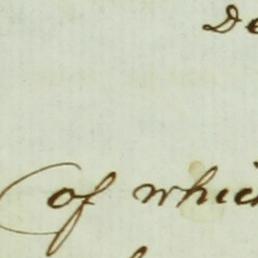 De
of whic